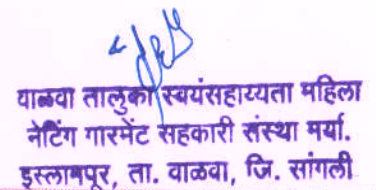 वाळवा तालुका स्वयंसहाय्यता महिला
नेटिंग गारमेंट सहकारी संस्था मर्या.
इस्लामपूर, ता. वाळवा, जि. सांगली